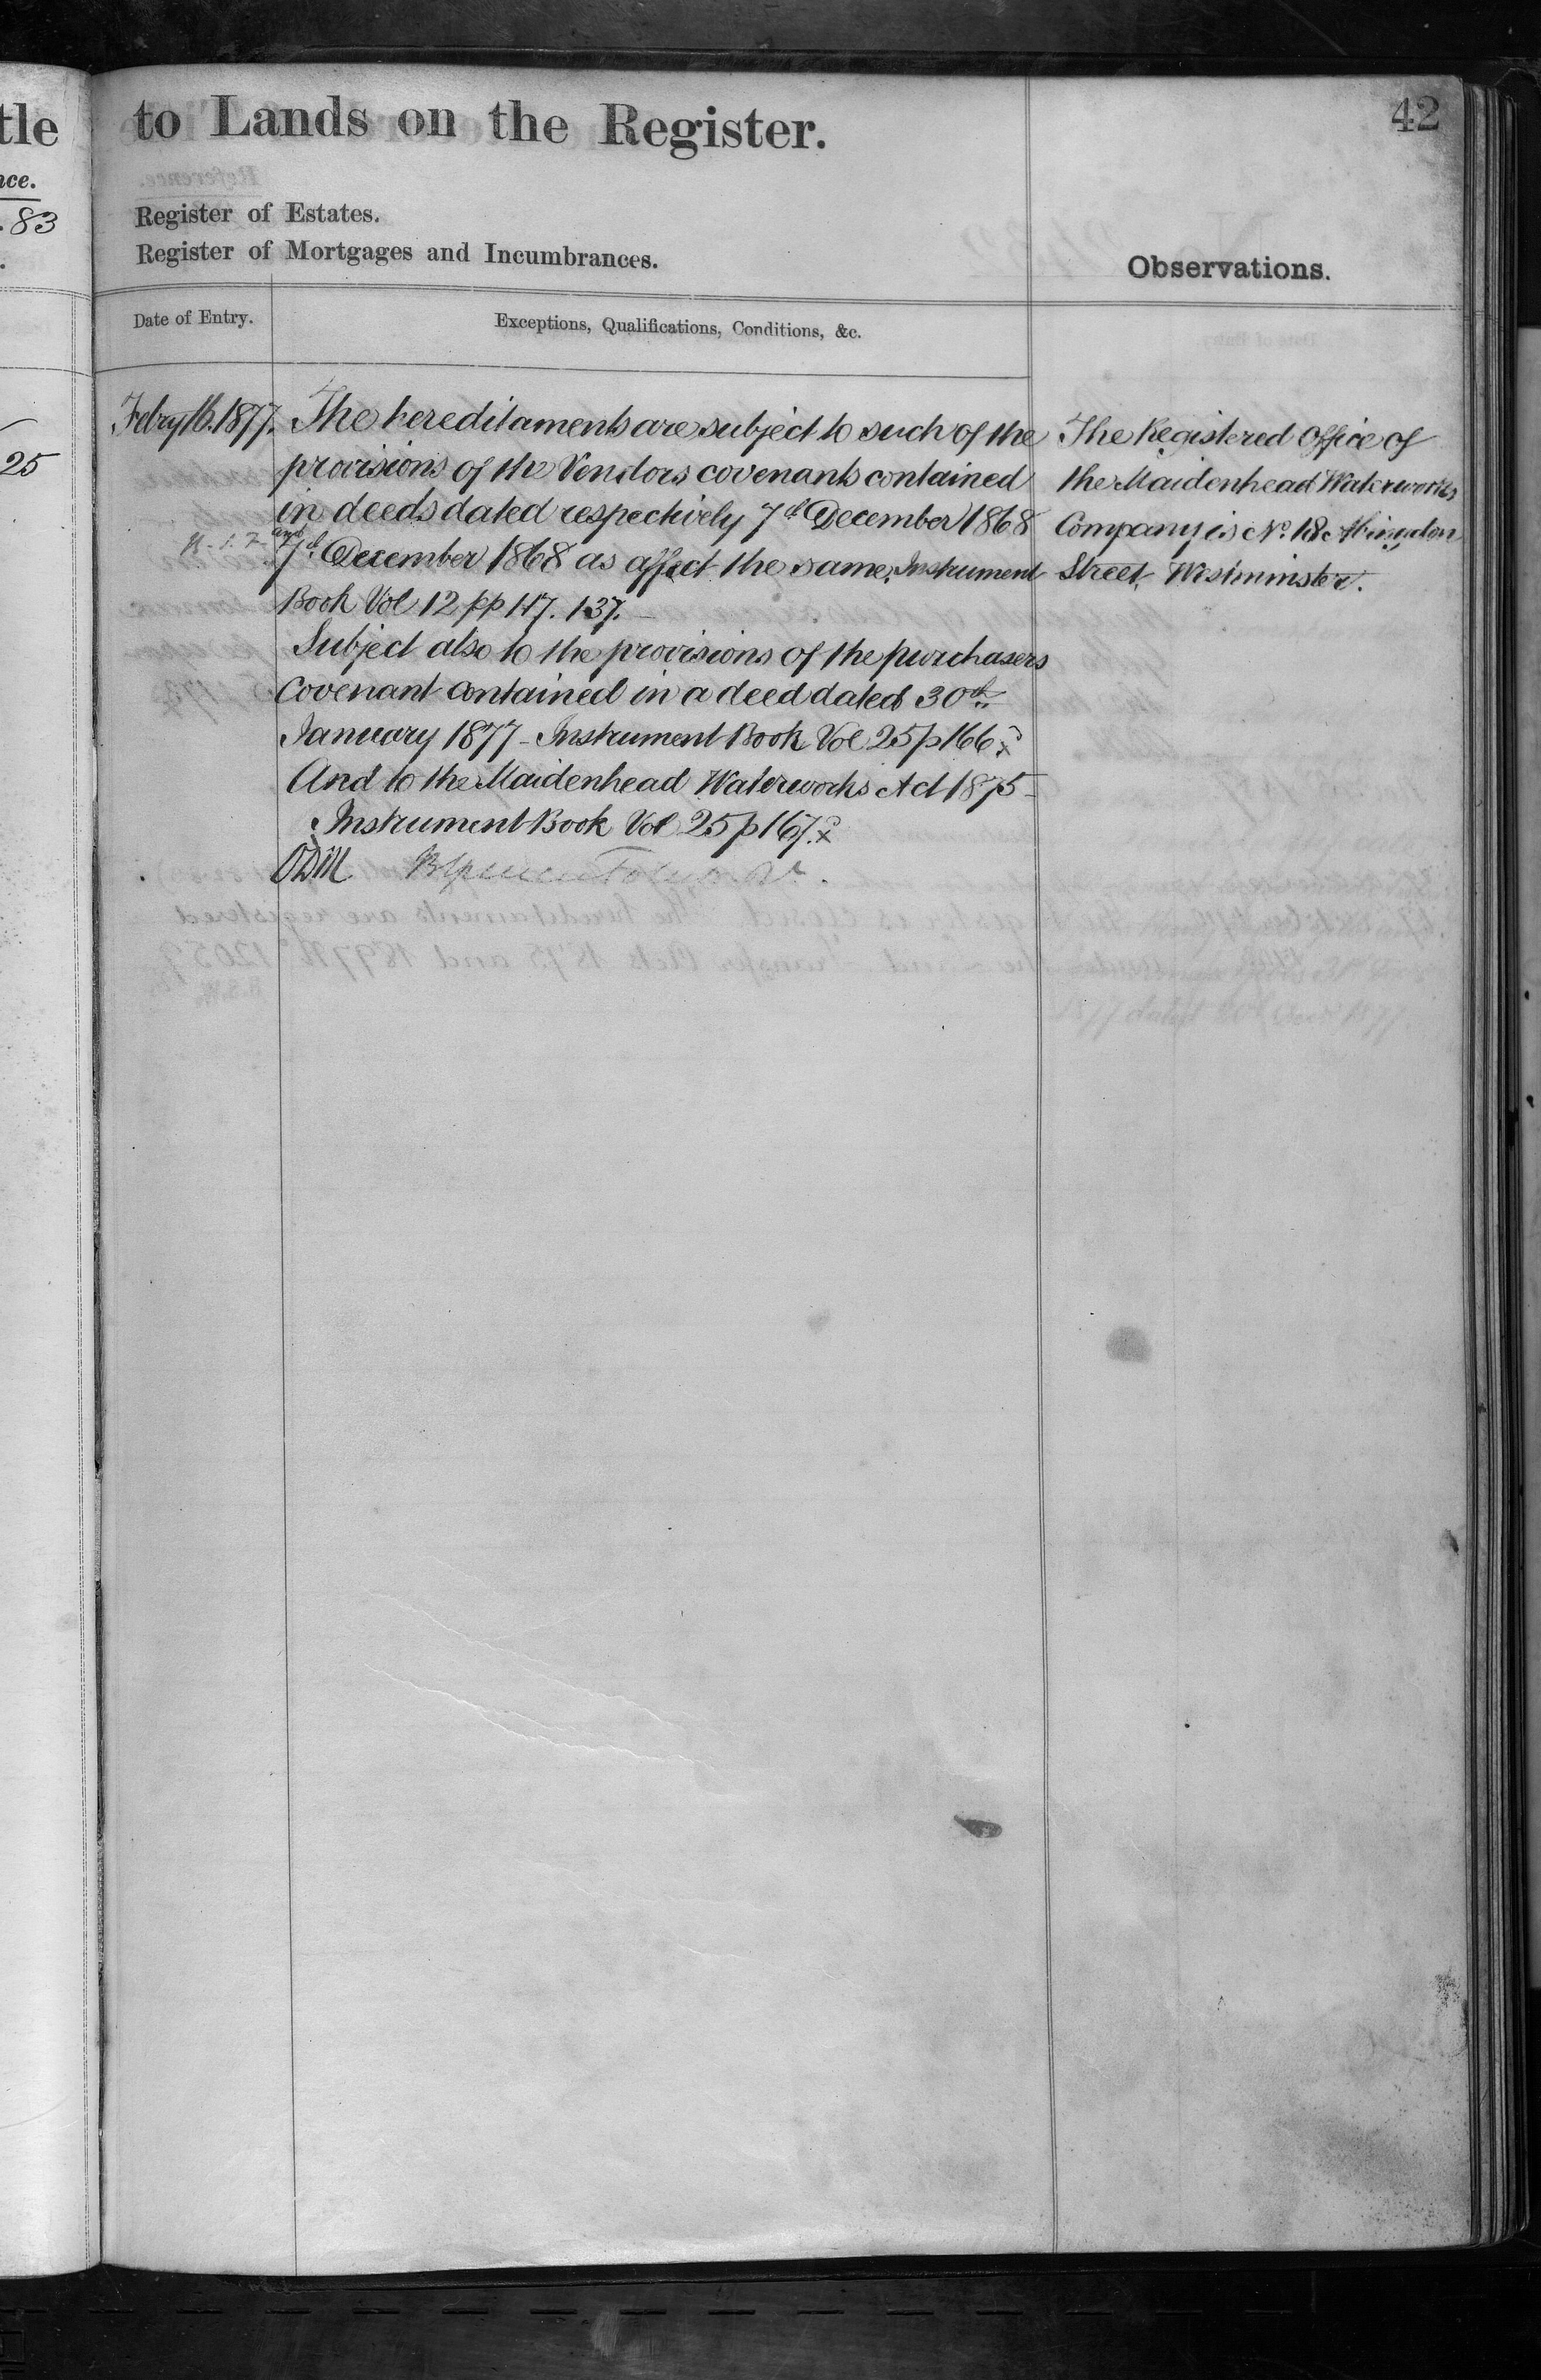 tle
nce.
.83
25
to Lands on the Register.
42
Register of Estates.
Register of Mortgages and Incumbrances.
Observations.
Date of Entry.
Exceptions, Qualifications, Conditions, &c.
Febry 16. 1877.
The hereditaments are subject to such of the
provisions of the Vendors covenants contained
in deeds dated respectively 7th December 1868
and
7th December 1868 as affect the same, Instrument
Book Vol 12 pp 117. 137.
Subject also to the provisions of the purchasers
Covenant contained in a deed dated 30th
January 1877 - Instrument Book Vol 25 p 166
And to the Maidenhead Waterworks Act 1875 -
Instrument Book Vol 25 p 167.
The Registered Office of
the Maidenhead Waterworks
Company is No. 18 Abingdon
Street, Westminster.